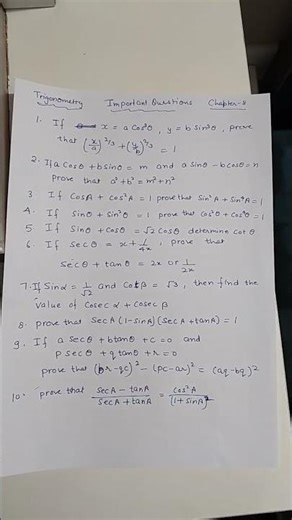 Trigonometry Important Questions Chapter-8
1. If x = a cos³θ, y = b sin³θ, prove
that (x/a)^2/3 + (y/b)^2/3 = 1
2. If a cosθ + b sinθ = m and a sinθ - b cosθ = n
Prove that a² + b² = m² + n²
3 If CosA + cos²A = 1 prove that sin²A + sin⁴A = 1
4. If sinθ + sin²θ = 1 prove that cos²θ + cos⁴θ = 1
5 If sinθ + cosθ = √2 cosθ determine cot θ
6. If sec θ = x + 1/4x, prove that
secθ + tanθ = 2x or 1/2x
7. If sin α = 1/√2 and Cotβ = √3, then find the
value of Cosec α + cosec β
8. prove that SecA (1-sinA) (secA + tanA) = 1
9. If a secθ + b tanθ + c = 0 and
p secθ + q tanθ + r = 0
prove that (br - qc)² - (pc - ar)² = (aq - bp)²
10. prove that secA - tanA / secA + tanA = cos²A / (1 + sinA)²